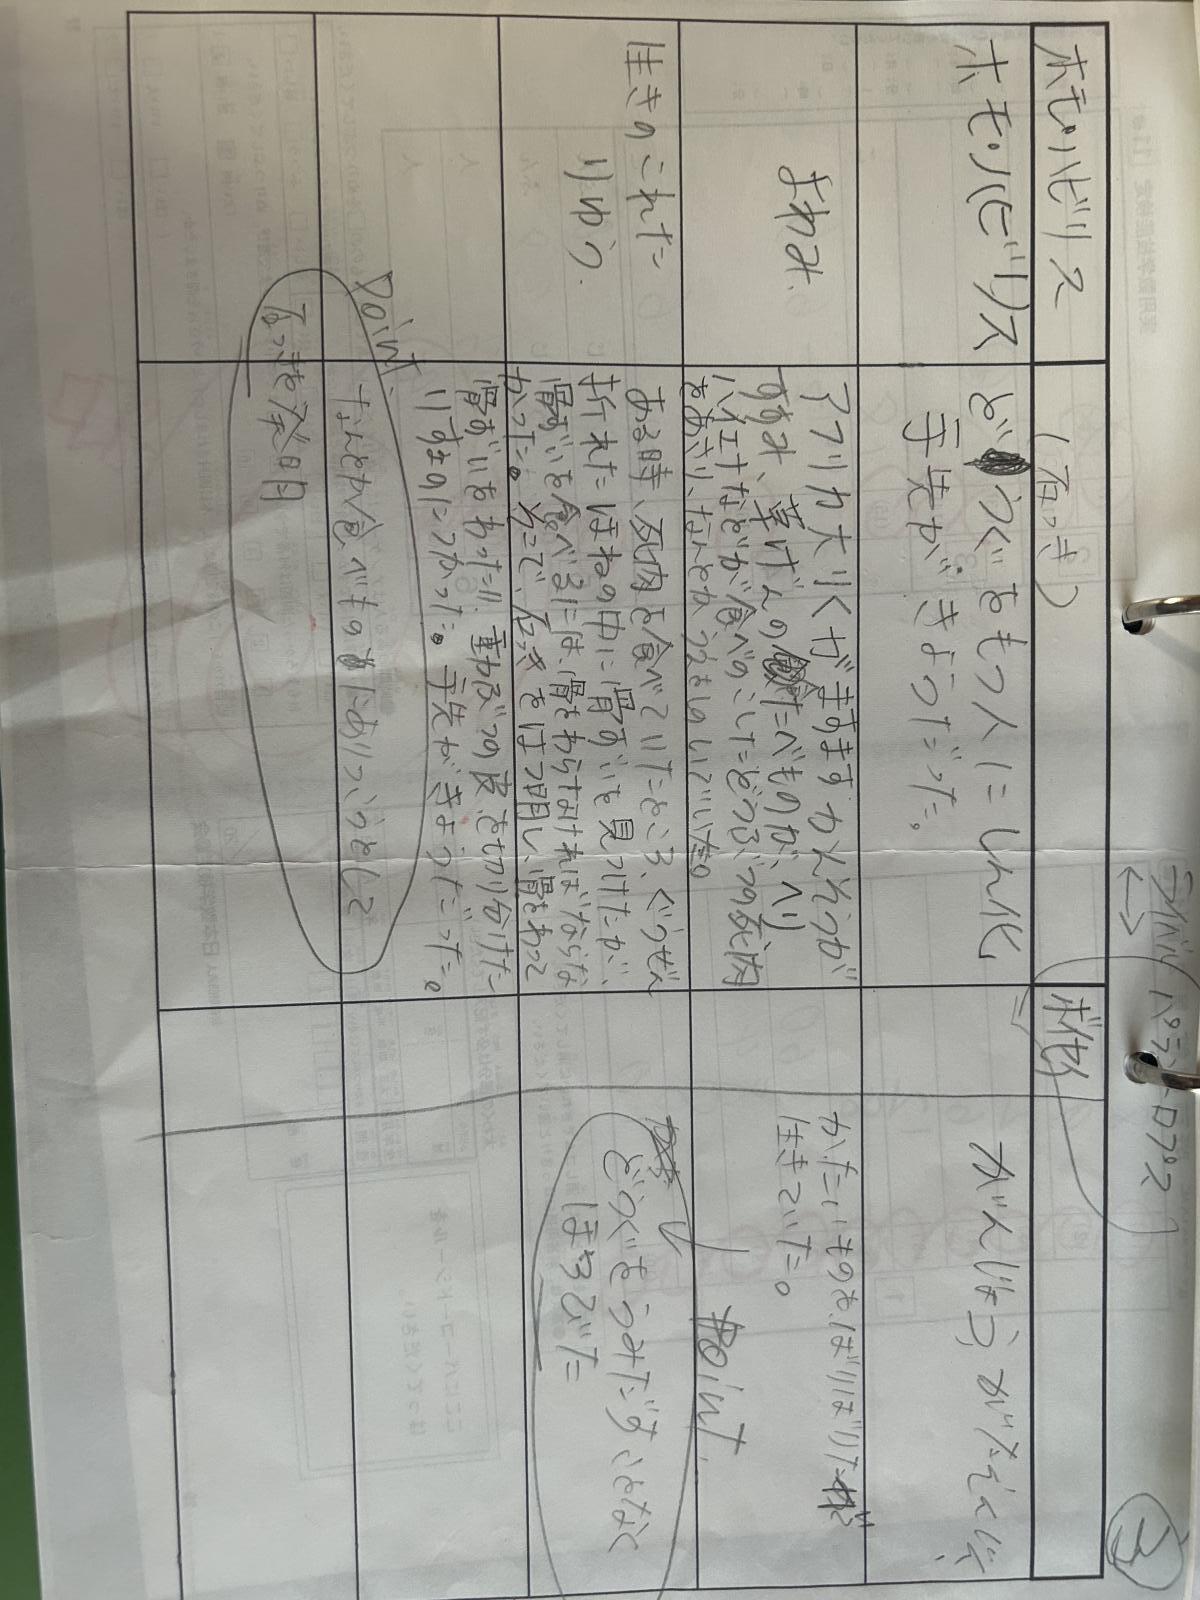 ③
ライバル パラントロプス
ホモ・ハビリス
(石っき)
ボイセイ
ホモ・ハビリス
どうぐをもつ人にしん化
手先がきようだった。
がんじょうがたえんじん
よわみ
アフリカ大りくがますますかんそうが
すすみ、草げんのたべものが、へり
ハイエナなどが食べのこしたどうぶつの死肉
をあさり、なんとかつなをしのしいでいた。
かたいものをばりばりたべ
生きていた。
生きのこれた
りゆう
ある時、死肉を食べていたところ、ぐうぜん
折れたほねの中に骨ずいを見つけたが、
骨ずいを食べるには、骨をわらなければならな
かった。そこで、石っきをはつ明し、骨をわって
Point
どうぐをうみだすことなく
ほろびた
骨ずいをあったり、動ぶつの皮を切り分けた
りするのにつかった。手先がきようだった。
Point
なんとか食べものにありつこうとして
石っきを発明